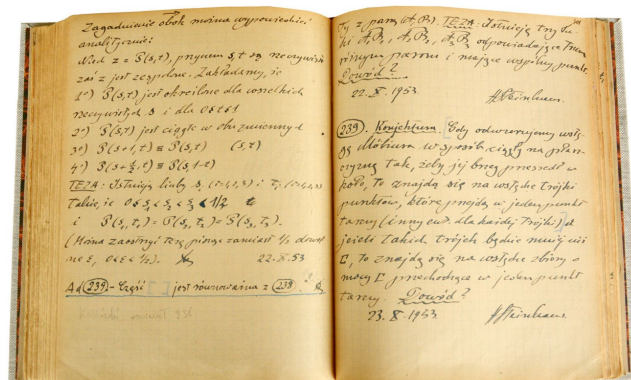 Zagadnienie obok można wypowiedzieć
analitycznie:
Niech z = P(s,t), przyczem s, t są rzeczywiste
zaś z jest zespolone. Zakładamy, że
1°) P(s,t) jest określone dla wszelkich
rzeczywistych s i dla 0≤t≤1
2°) P(s,t) jest ciągłe w obu zmiennych
3°) P(s+1,t) ≡ P(s,t) (s,t)
4°) P(s+½,t) ≡ P(s,1-t)
TEZA: Istnieją liczby
takie, że 0≤s₁≤s₂≤s₃<1/2
i P(s₁,t₁)=P(s₂,t₂)=P(s₃,t₃).
(Można zaostrzyć tezę pisząc zamiast ½
22.X.53
Ad (239) - Część [ ] jest równoważna z (238)
TEZA: Istnieją trzy łu-
ki A₁B₁, A₂B₂, A₃B₃ odpowiadające trzem
różnym parom i mające wspólny punkt.
Dowód?
22.X.1953. HSteinhaus.
(239). Konjektura. Gdy odwzorujemy wstę-
gę Möbiusa w sposób ciągły na płasz-
czyznę tak, żeby jej brzeg przeszedł w
koło, to znajdą się na wstędze trójki
punktów, które przejdą w jeden punkt
tarczy (inny ew. dla każdej trójki)
jeżeli takich trójek będzie mniej niż
c, to znajdą się na wstędze zbiory o
mocy c przechodzące w jeden punkt
tarczy. Dowód?
23.X.1953 HSteinhaus.